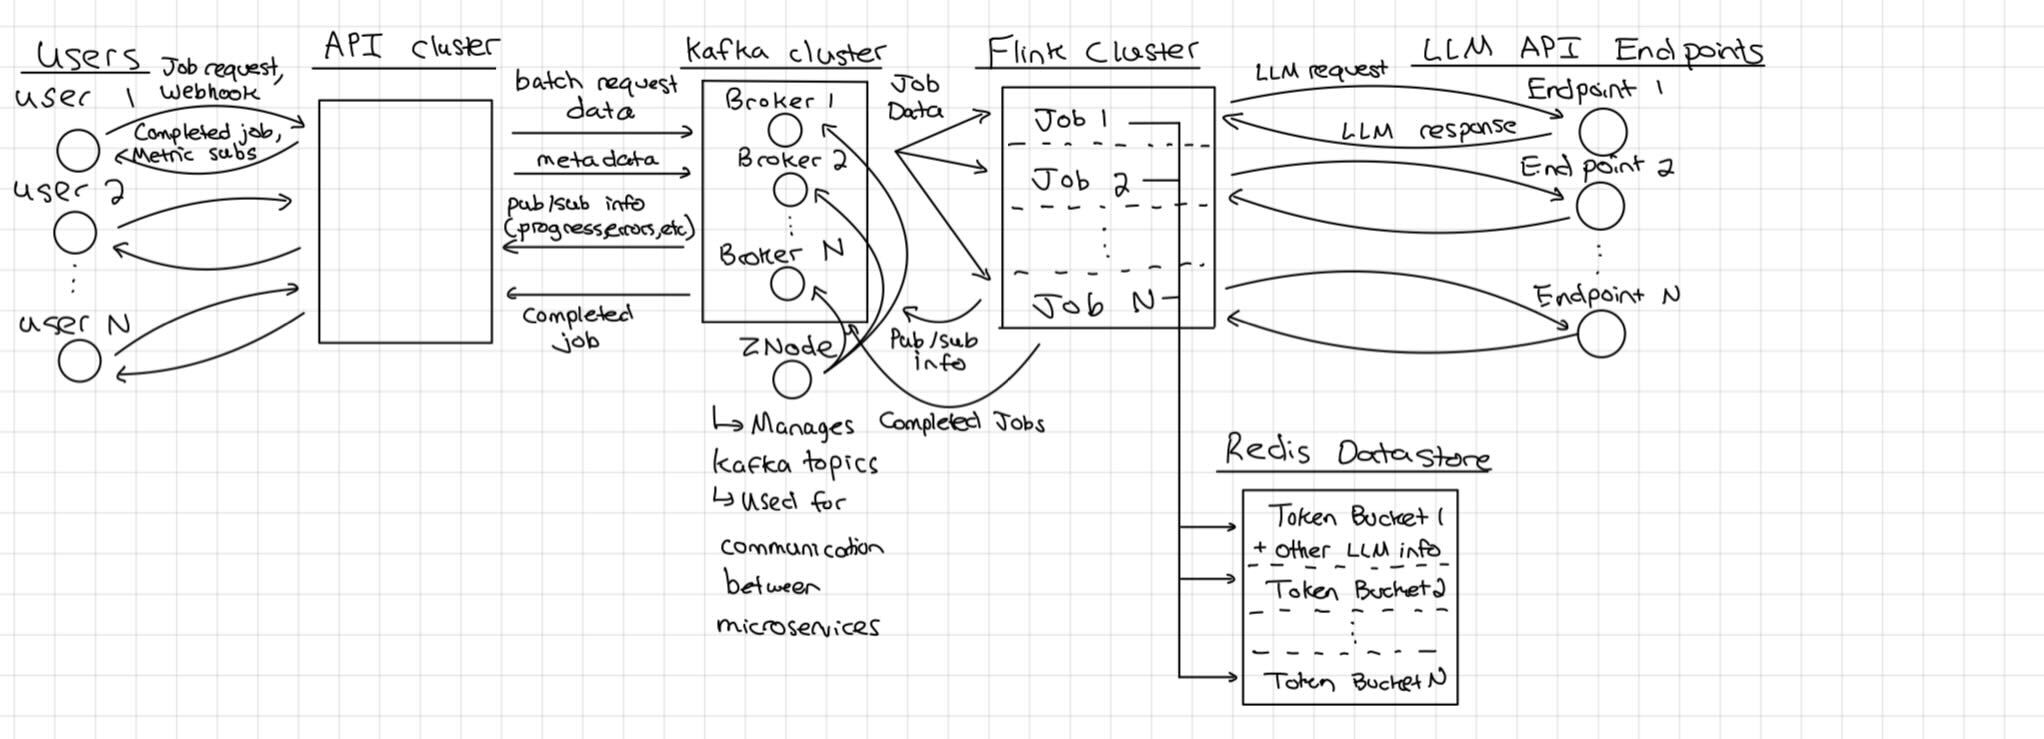 Users
Job request,
Webhook
user 1
Completed job,
Metric subs
user 2
user N
API cluster
batch request
data
metadata
pub/sub info
(progress,errors,etc)
completed
job
Kafka cluster
Broker 1
Broker 2
Broker N
ZNode
↳ Manages
kafka topics
↳ Used for
communication
between
microservices
Job
Data
Pub/sub
info
Completed Jobs
Flink Cluster
Job 1
Job 2
Job N
LLM API Endpoints
LLM request
LLM response
Endpoint 1
Endpoint 2
Endpoint N
Redis Datastore
Token Bucket 1
+ other LLM info
Token Bucket 2
Token Bucket N